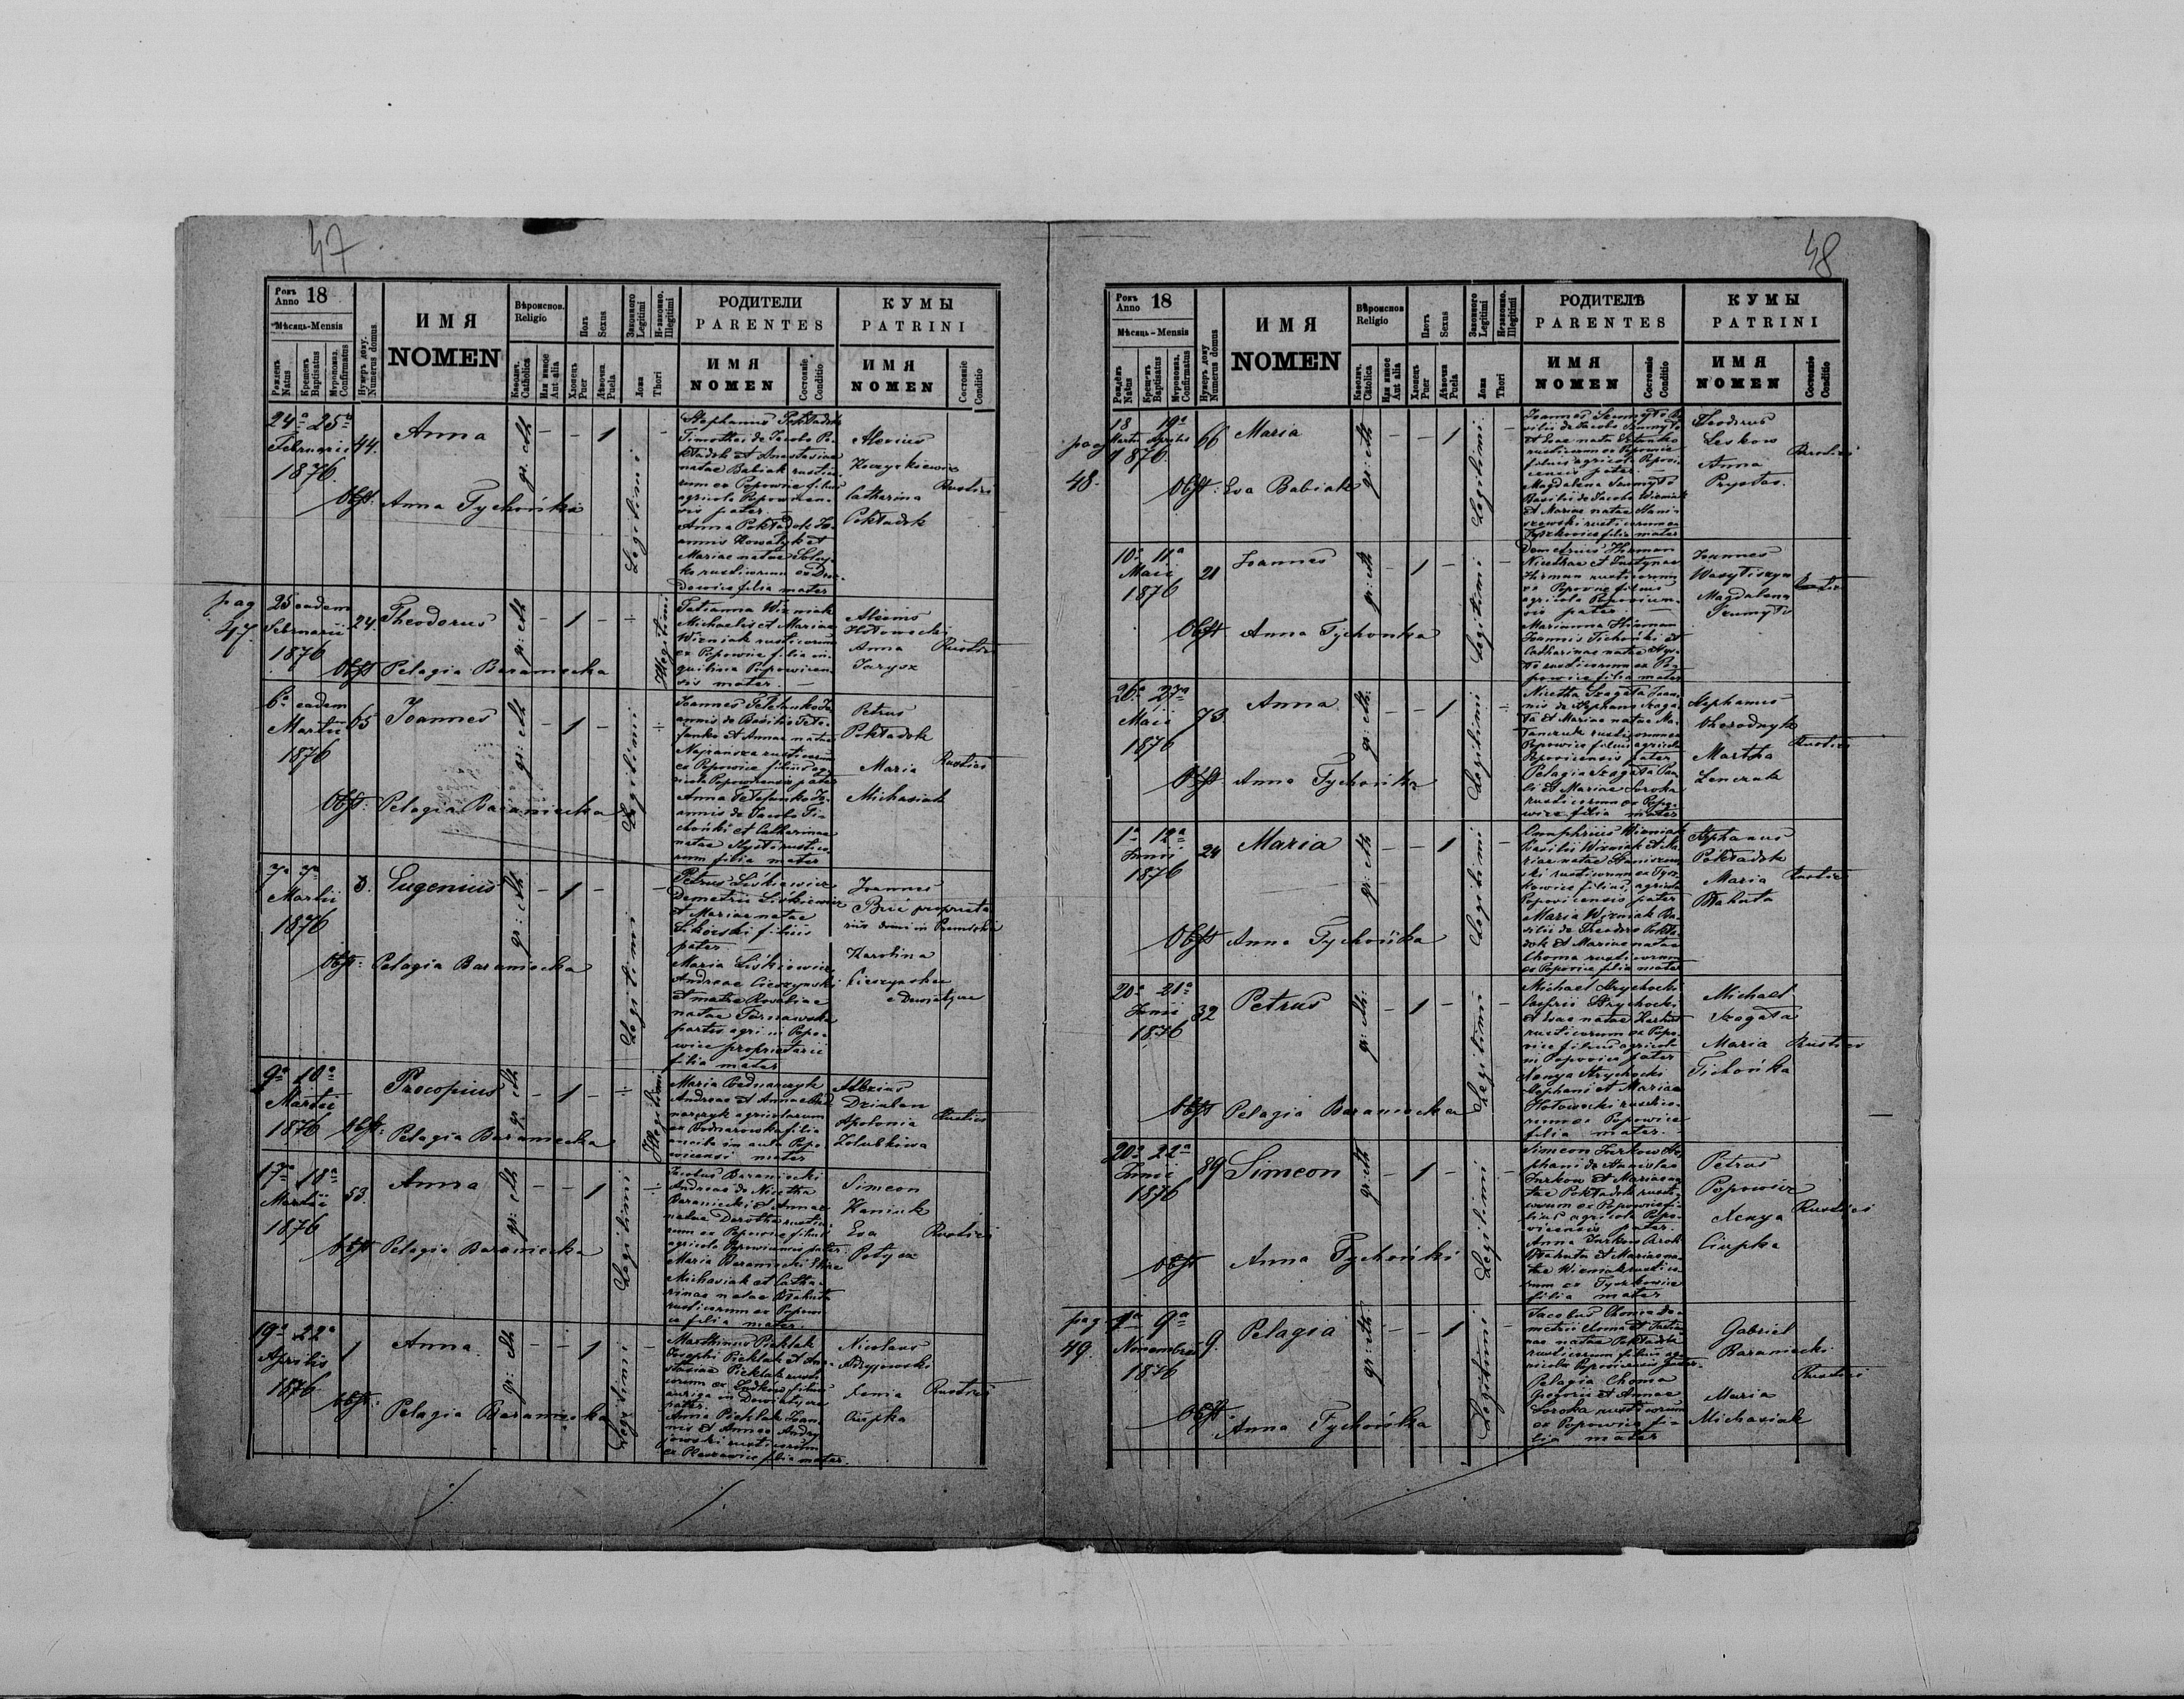 47
Рокъ Anno 18
Мѣсяць-Mensis
Рожденъ Natus
Крещенъ Baptisatus
Мѵропомаз. Confirmatus
Нумеръ дому. Numerus domus
ИМЯ
NOMEN
Вѣроиспов. Religio
Католич. Catholica
Или иное Aut alia
Полъ Sexus
Хлопецъ Puer
Дѣвочка Puela
Законного Legitimi
Незаконно. Illegitimi
Ложа Thori
РОДИТЕЛИ
PARENTES
ИМЯ
NOMEN
Состояніе Conditio
КУМЫ
PATRINI
ИМЯ
NOMEN
Состояніе Conditio
24a 25a
Februarii
1876
44.
Anna
Obst: Anna Tychońka
gr: cth
- - 1
Legitimi
Stephanus Pokładok
Timothei de Jacobo Po-
kładok et Anastasiae
natae Babiak rustico-
rum ex Popowice filius
agricola Popovicen-
sis pater. -
Anna Pokładok Jo-
annis Kowalyk et
Mariae natae
rusticorum ex
filia mater
Alexius
Catharina
Pokładok
Rustici
pag
47
25 eadem
Februarii
1876
24.
Theodorus
Obst Pelagia Baraniecka
gr: cth
- 1 -
Illegitimi
Tatianna Wizniak
Michaelis et Mariae
Wizniak rusticorum
ex Popowice filia in-
quilina Popovicen-
sis mater. -
Alexius
Hołowecki
Anna
Jarysz
Rustici
6a eadem
Martii
1876
65
Joannes
Obst: Pelagia Baraniecka
gr: cth
- 1 -
Legitimi
Joannes Telefanko Jo-
annis de Basilio Tele-
fanko et Annae natae
rusticorum
ex Popowice filius ag-
ricola Popovicensis pater
Anna Telefanko Jo-
annis de Jacobo Ti-
choński et Catharinae
natae rustico-
rum filia mater
Petrus
Pokładok
Maria
Michasiak
Rustici
7a 7a
Martii
1876
3.
Eugenius
Obst: Pelagia Baraniecka
gr: cth
- 1 -
Legitimi
Petrus Liśkiewicz
Demetrii Liśkiewicz
et Mariae natae
Sikorski filius
pater. -
Maria Liśkiewicz
Andreae Cieczynski
et matre Rosaliae
natae Tarnawska
partis agri in Popo-
wice proprietarii
filia mater
Joannes
Brié proprieta-
rius domi in Premislia
Karolina
Cieczynska
e Dewiatycze
9a 10a
Martii
1876
Procopius
Obst: Pelagia Baraniecka
gr: cth
- 1 -
Illegitimi
Maria Bednarczyk
Andreae et Annae Bed-
narczyk agricolarum
ex Bednarowska filia
ancila in aula Popo-
wicensi mater
Alexius
Dziaban
Apolonia
Zolubkiwa
Rustici
17a 18a
Martii
1876
53.
Anna
Obst Pelagia Baraniecka
gr: cth
- - 1
Legitimi
Jacobus Baraniecki
Andreae de Nicetha
Baraniecki et Annae
natae Dorotha rustico-
rum ex Popowice filius
agricola Popovicensis pater
Maria Baraniecki
Michasiak et Catha-
rinae natae Błahuta
rusticorum ex Popowi-
ce filia mater.
Simeon
Haniuk
Eva
Potycz
Rustici
19a 22a
Aprilis
1876
1
Anna.
Obst: Pelagia Baraniecka
gr: cth
- - 1
Legitimi
Marthinus Pichlak
Josephi Pichlak et Ana-
stasiae Pichlak rusti-
corum ex filius
auriga in Dewiatycze
pater.
Anna Pichlak Joan-
nis et Annae Andry-
jowski rusticorum
ex filia mater.
Nicolaus
Andryjowski
Xenia
Ciupka
Rustici
48
Рокъ Anno 18
Мѣсяць-Mensis
Рожденъ Natus
Крещ-нъ Baptisatus
Мѵропомаз. Confirmatus
Нумеръ дому Numerus domus
ИМЯ
NOMEN
Вѣроиспов. Religio
Католич. Catolica
Или иное Aut alia
Sexus
Хлопецъ Puer
Дѣвочка Puela
Законного Legitimi
Незаконно. Illegitimi
Ложа Thori
РОДИТЕЛѢ
PARENTES
ИМЯ
NOMEN
Состояніе Conditio
КУМЫ
PATRINI
ИМЯ
NOMEN
Состояніе Conditio
pag
48.
18 19a
Martii Aprilis
1876
66
Maria
Obst: Eva Babiak
gr: cth
- - 1
Legitimi
Joannes Szumyło Ba-
silii de Jacobo Szumyło
et Evae natae
rusticorum ex Popowice
filius agricola Popovi-
censis pater. -
Magdalena Szumyło
Basilii de Jacobo Wizniak
et Mariae natae Stani-
szewski rusticorum ex
Tyszkowice filia mater
Theodorus
Leskow
Anna
Prystac.
Rustici
10a 11a
Maii
1876
21
Joannes
Obst Anna Tychonka
gr: cth
- 1 -
Legitimi
Demetrius Hirman
Nicethae et Justynae
Hirman rusticorum
ex Popowice filius
agricola Popovicen-
sis pater. -
Marianna Hirman
Joannis Tichoński et
Catharinae natae
rusticorum ex Po-
powice filia mater
Joannes
Wasyliszyn
Magdalena
Szumyło
Rustici
26a 27a
Maii
1876
73
Anna
Obst. Anna Tychońka
gr: cth:
- - 1
Legitimi
Nicetha Szagała Joan-
nis de Stephano Szaga-
ła et Mariae natae
rusticorum ex
Popowice filius agricola
Popovicensis pater
Pelagia Szagała Pau-
li et Mariae Soroka
rusticorum ex Popo-
wice filia mater
Stephanus
Ohorodnyk
Martha
Lenczak
Rustici
1a 12a
Junii
1876
24
Maria
Obst Anna Tychońka
gr: cth
- - 1
Legitimi
Onuphrius Wizniak
Basilii Wizniak et Ma-
riae natae Staniszew-
ski rusticorum ex Tysz-
kowice filius agricola
Popovicensis pater
Maria Wizniak Ba-
silii de Theodoro Pokła-
dok et Mariae natae
Choma rusticorum
ex Popowice filia mater
Stephanus
Pokładok
Maria
Błahuta
Rustici
20a 21a
Junii
1876
32
Petrus
Obst Pelagia Baraniecka
gr: cth:
- 1 -
Legitimi
Michael Strychocki
Strychocki
et Evae natae
rusticorum ex Popo-
wice filius agricola
in Popowice pater
Xenya Strychocki
Stephani et Mariae
Hołowecki rustico-
rum ex Popowice
filia mater. -
Michael
Szagała
Maria
Tichońka
Rustici
20a 22a
Junii
1876
89
Simeon
Obst Anna Tychoński
gr: cth
- 1 -
Legitimi
Simeon Jurkow Ste-
phani de Stanislao
Jurkow et Mariae na-
tae Pokładok rusti-
corum ex Popowice fi-
lius agricola Popo-
vicensis pater.
Anna Jurkow
Błahuta et Mariae na-
tae Wizniak rustico-
rum ex Tyszkowice
filia mater
Petrus
Popowicz
Xenya
Ciupka
Rustici
pag
49.
1a 9a
Novembris
1876
9.
Pelagia
Obst: Anna Tychońka
gr: cth
- - 1
Legitimi
Jacobus Choma De-
metrii Choma et Tatia-
nae natae Pokładok
rusticorum filius ag-
ricola Popovicensis pater.
Pelagia Choma
Gregorii et Annae
Soroka rusticorum
ex Popowice fi-
lia mater
Gabriel
Baraniecki
Maria
Michasiak
Rustici